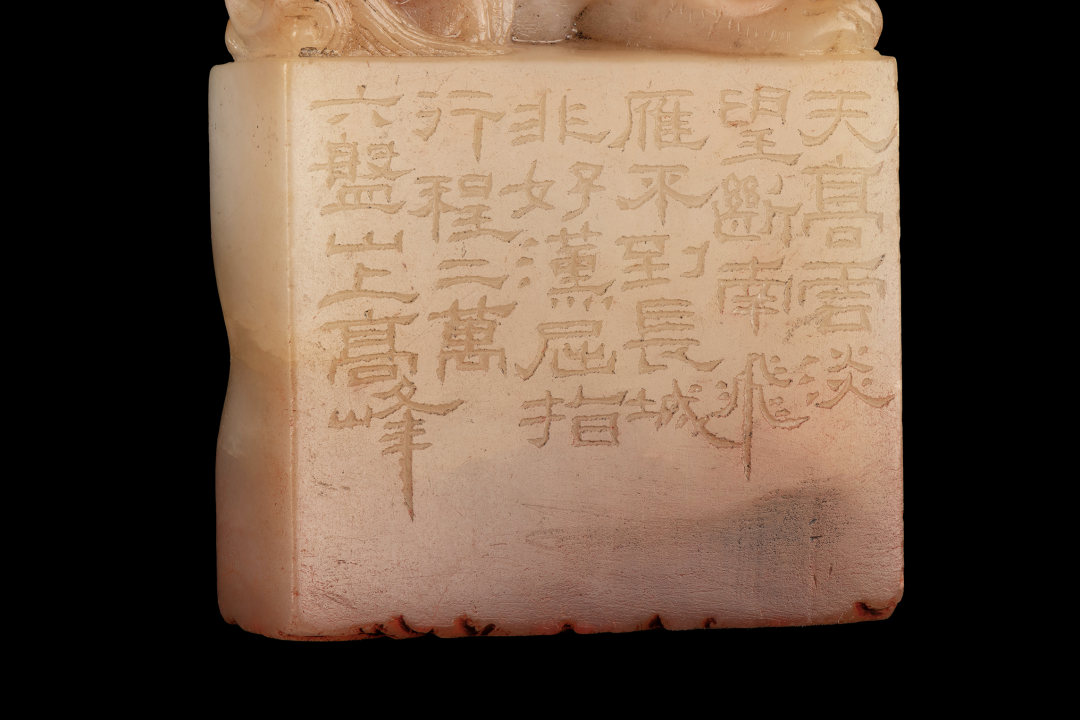 天高雲淡
望斷南飛
雁不到長城
非好漢屈指
行程二萬
六盤山上高峰